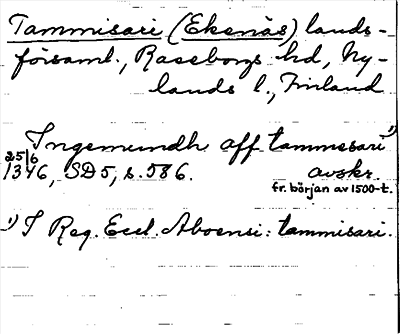 Tammisari (Ekenäs) lands-
församl., Raseborgs hd, Ny-
lands l., Finland
Ingemundh aff tammesari 1)
25/6
1346, SD 5, s. 586. avskr.
fr. början av 1500-t.
1) I Reg. Eccl. Aboensi: tammisari.